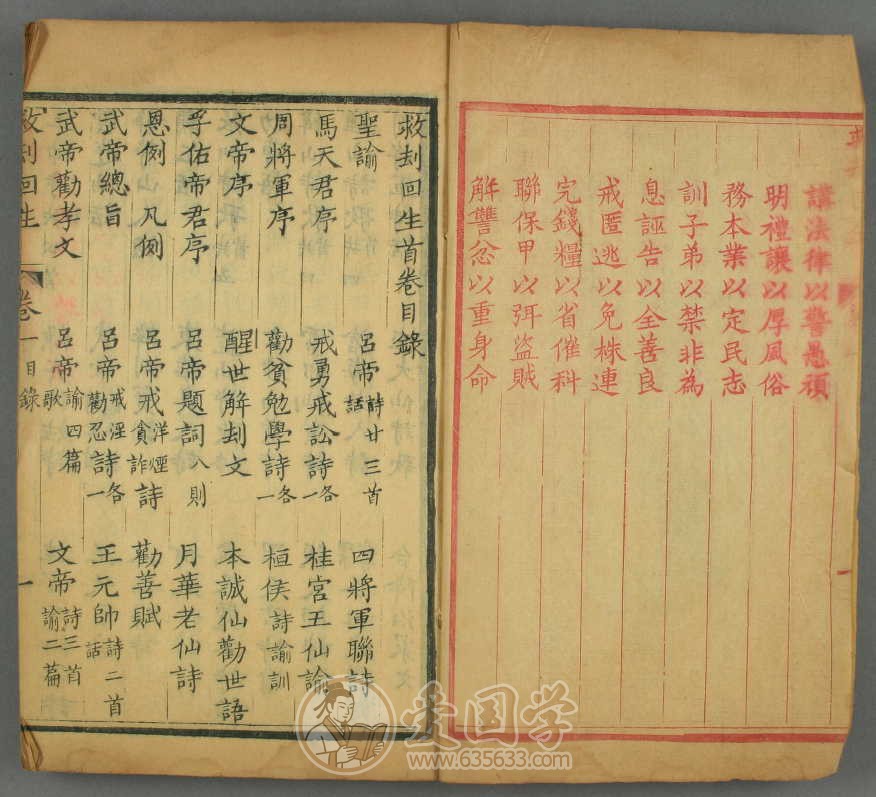 講法律以警愚頑
明禮讓以厚風俗
務本業以定民志
訓子弟以禁非為
息誣告以全善良
戒匿逃以免株連
完錢糧以省催科
聯保甲以弭盜賊
解讐忿以重身命
一
救刦回生首卷目錄
聖諭 呂帝詩話廿三首 四將軍聯詩
馬天君序 戒勇戒訟詩各一 桂宮王仙諭
周將軍序 勸貧勉學詩各一 桓侯詩諭訓
文帝序 醒世解刦文 本誠仙勸世語
孚佑帝君序 呂帝題詞八則 月華老仙詩
恩例 凡例 呂帝戒洋煙貪詐詩 勸善賦
武帝總旨 呂帝戒淫勸忍詩各一 王元帥詩二首話
武帝勸孝文 呂帝諭歌四篇 文帝詩三首諭二篇
救刦回生 卷一目錄 一
爱国学
www.635633.com